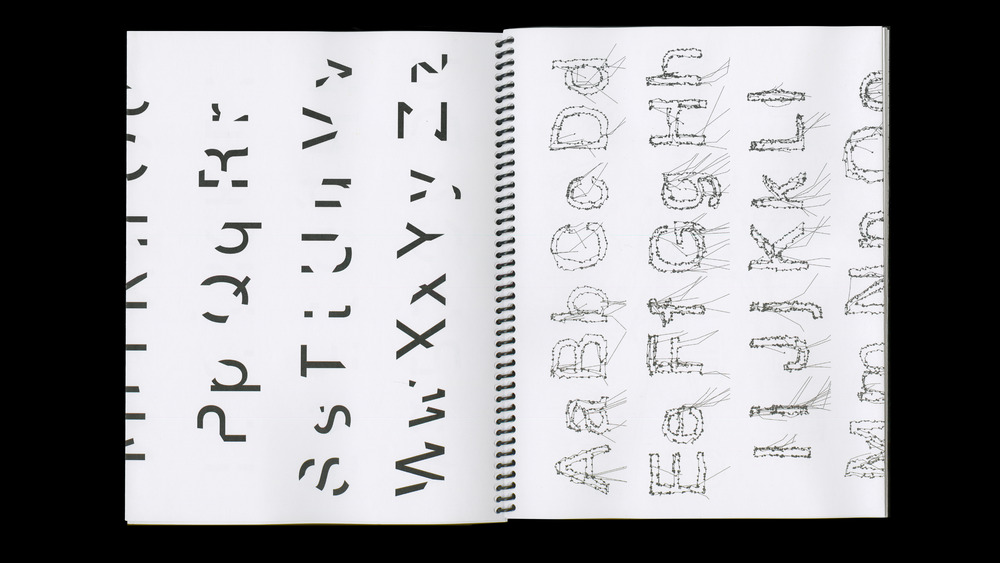 Pp Qq Rr
Ss Tt Uu Vv
Ww Xx Yy Zz
Aa Bb Cc Dd
Ee Ff Gg Hh
Ii Jj Kk Ll
Mm Nn Oo